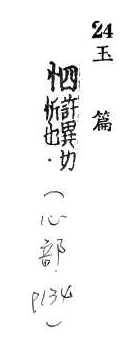 24 玉篇
怬許異切
忻也．
（心部．P134）